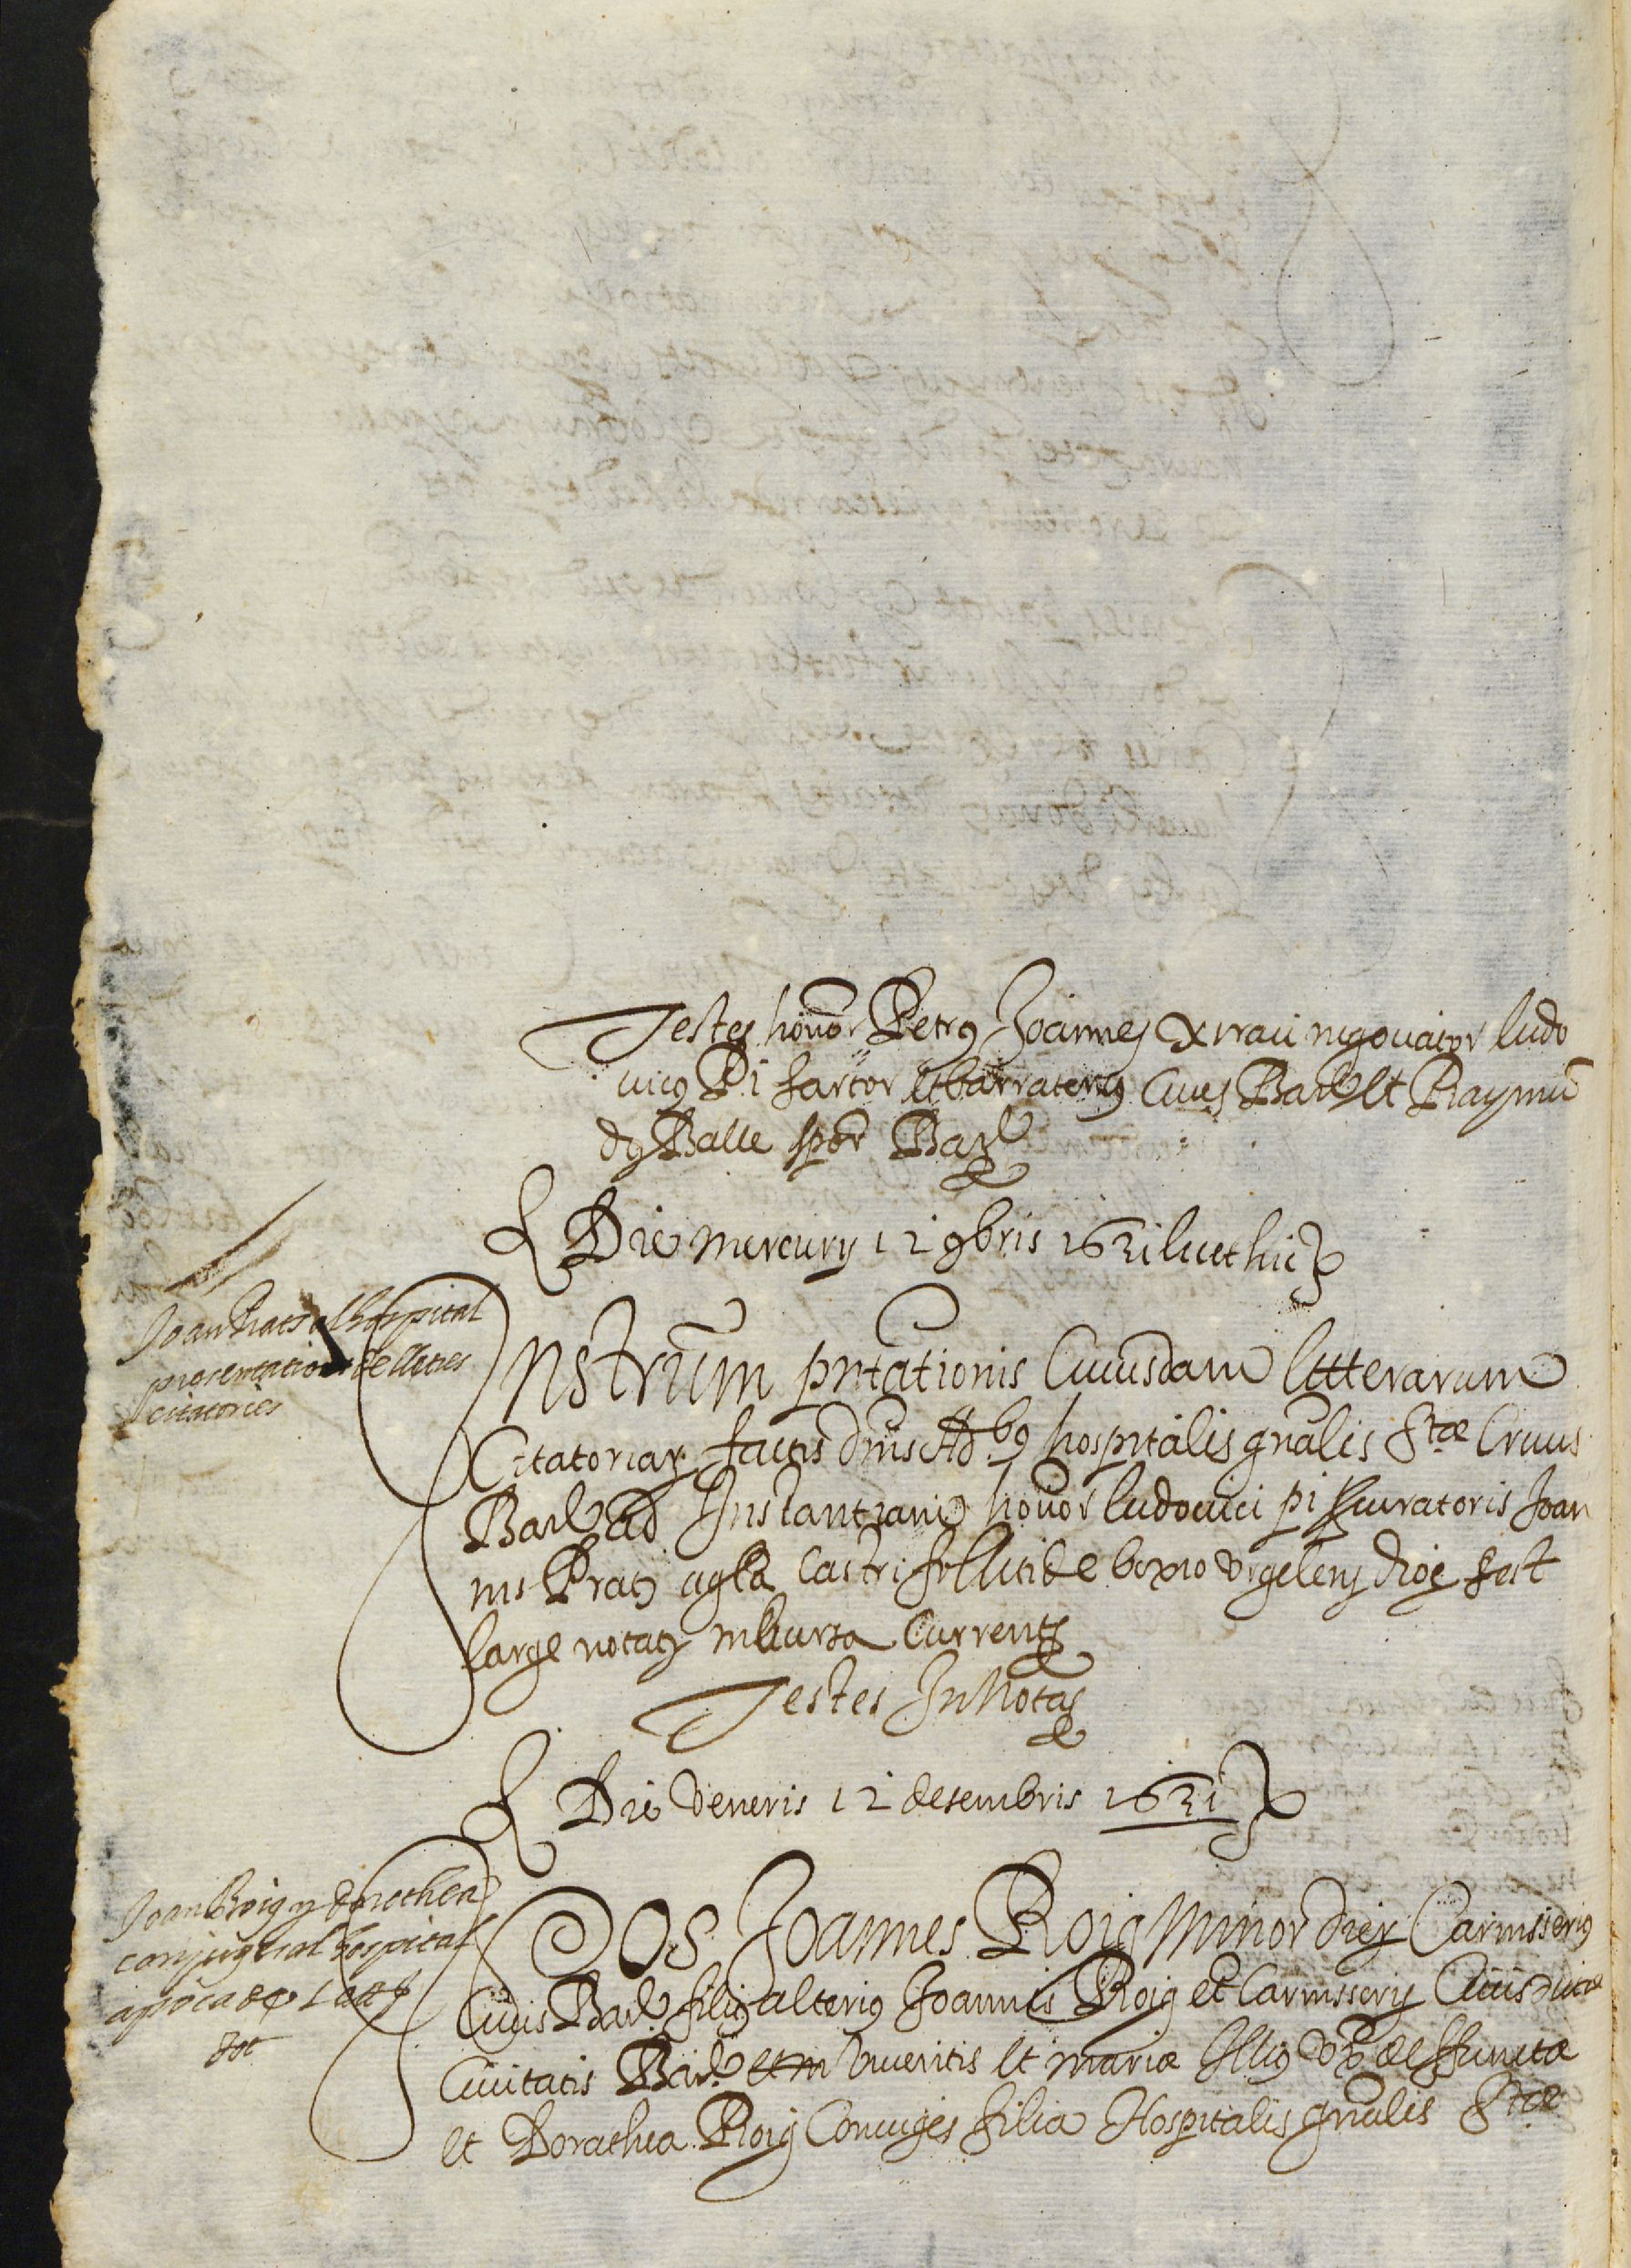 Testes honor Petrus Joannes Xrraü negotiator ludo
uicus Pi sartor et barraterius Ciues Barł et Raymū
dus Balle scptor Barł
Die mercurij 12 9bris 1631
Joan Prats al hospital
presentatio de lletres
citatories
Instrūm pntātionis Cuiusdam litterarum
Citatoriarum factis dnis Adbus hospitalis gnālis Stæ Crucis
Barł ad Instantiam honor ludouici pi procuratoris Joan
nis Prats Castri follit de urgellens est
large notatus in bursa Currenti
Testes In Notas
Die Veneris 12 desembris 1631
Joan Roig y dorothea
conjuges al hospital
apoca de
dot
Nos Joannes Roig minor dierum Carnisserius
Ciuis Barł filius alterius Joannis Roig et Carnisserij Ciuis dictæ
Ciuitatis Barł Viuentis et mariæ Illius deffunctæ
et Dorathea Roig Coniuges filia Hospitalis gnālis Stæ